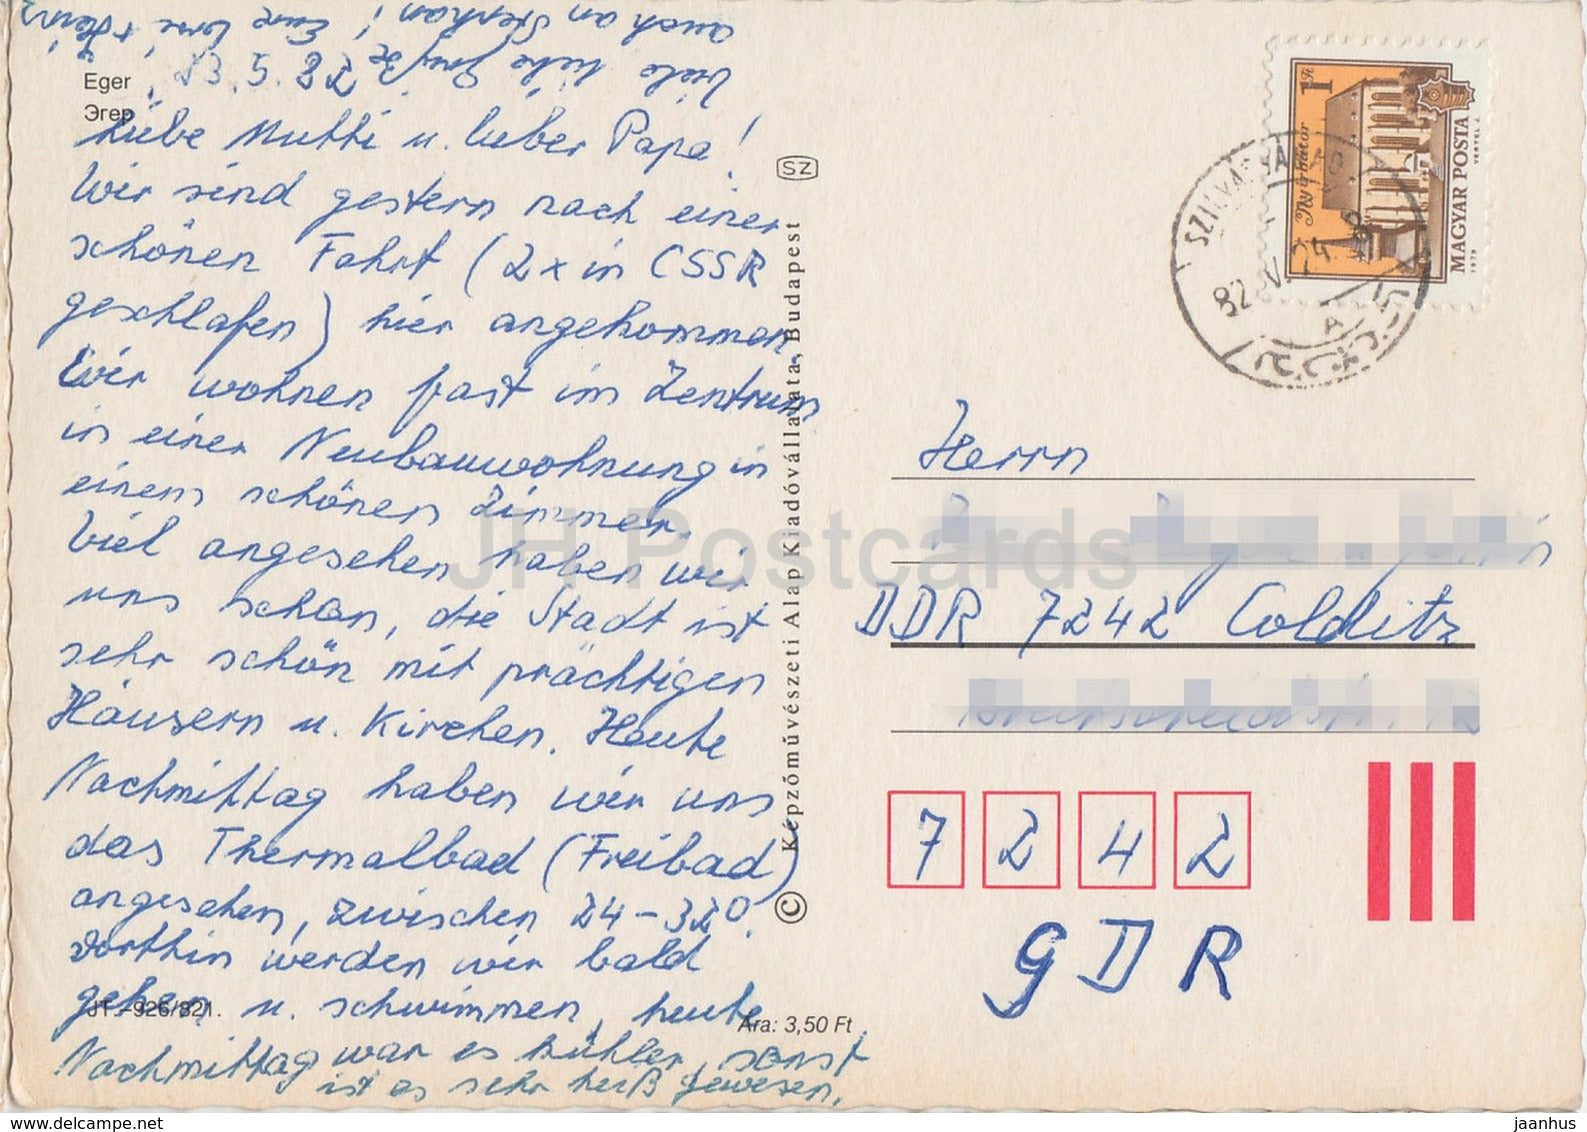 Eger
Эгер
23.5.82
Liebe Mutti u. lieber Papa!
Wir sind gestern nach einer
schönen Fahrt (2x in CSSR
geschlafen) hier angekommen.
Wir wohnen fast im Zentrum
in einer Neubauwohnung in
einem schönen Zimmer.
Viel angesehen haben wir
uns schon, die Stadt ist
sehr schön mit prächtigen
Häusern u. Kirchen. Heute
Nachmittag haben wir uns
das Thermalbad (Freibad)
angesehen, zwischen 24-32°.
Dorthin werden wir bald
gehen u. schwimmen, heute
Nachmittag war es kühler, sonst
ist es sehr heiß gewesen.
Viele liebe Grüße
auch an Stephan! Eure
JT.-926/821.
Ára: 3,50 Ft
SZ
© Képzőművészeti Alap Kiadóvállalata, Budapest
1 Ft
Nyírbátor
MAGYAR POSTA
VERTEL J.
1979
82
Herrn
DDR 7242 Colditz
7 2 4 2
GDR
JH Postcards
www.delcampe.net
jaanhus